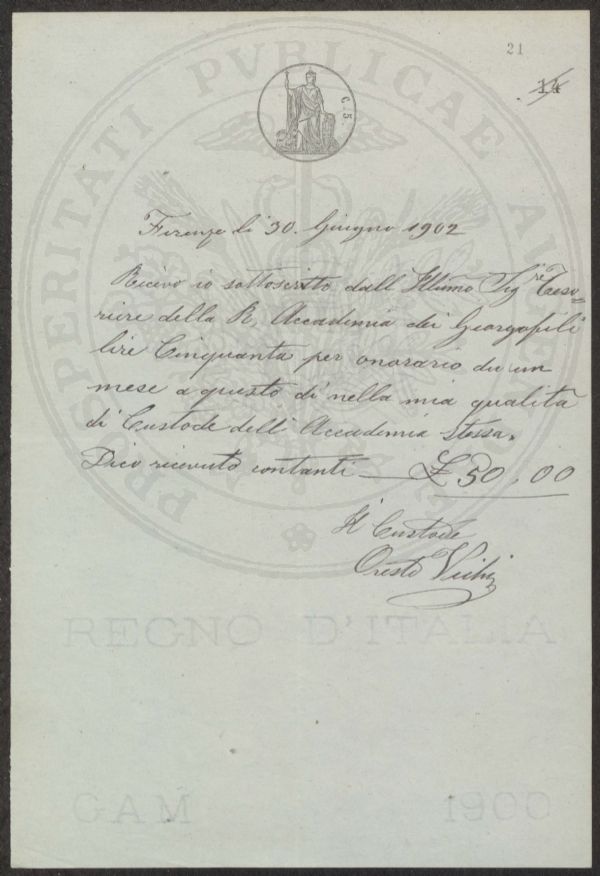 21
14
PROSPERITATI PVBLICAE AVGENDAE
C. 5.
Firenze li 30. Giugno 1902
Ricevo io sottoscritto dall Illumo Sigre Teso=
riere della R. Accademia dei Georgofili
lire Cinquanta per onorario di un
mese a questo dì nella mia qualità
di Custode dell' Accademia stessa.
Dico ricevuto contanti — £ 50,00
Il Custode
Oreste
REGNO D'ITALIA
GAM 1900